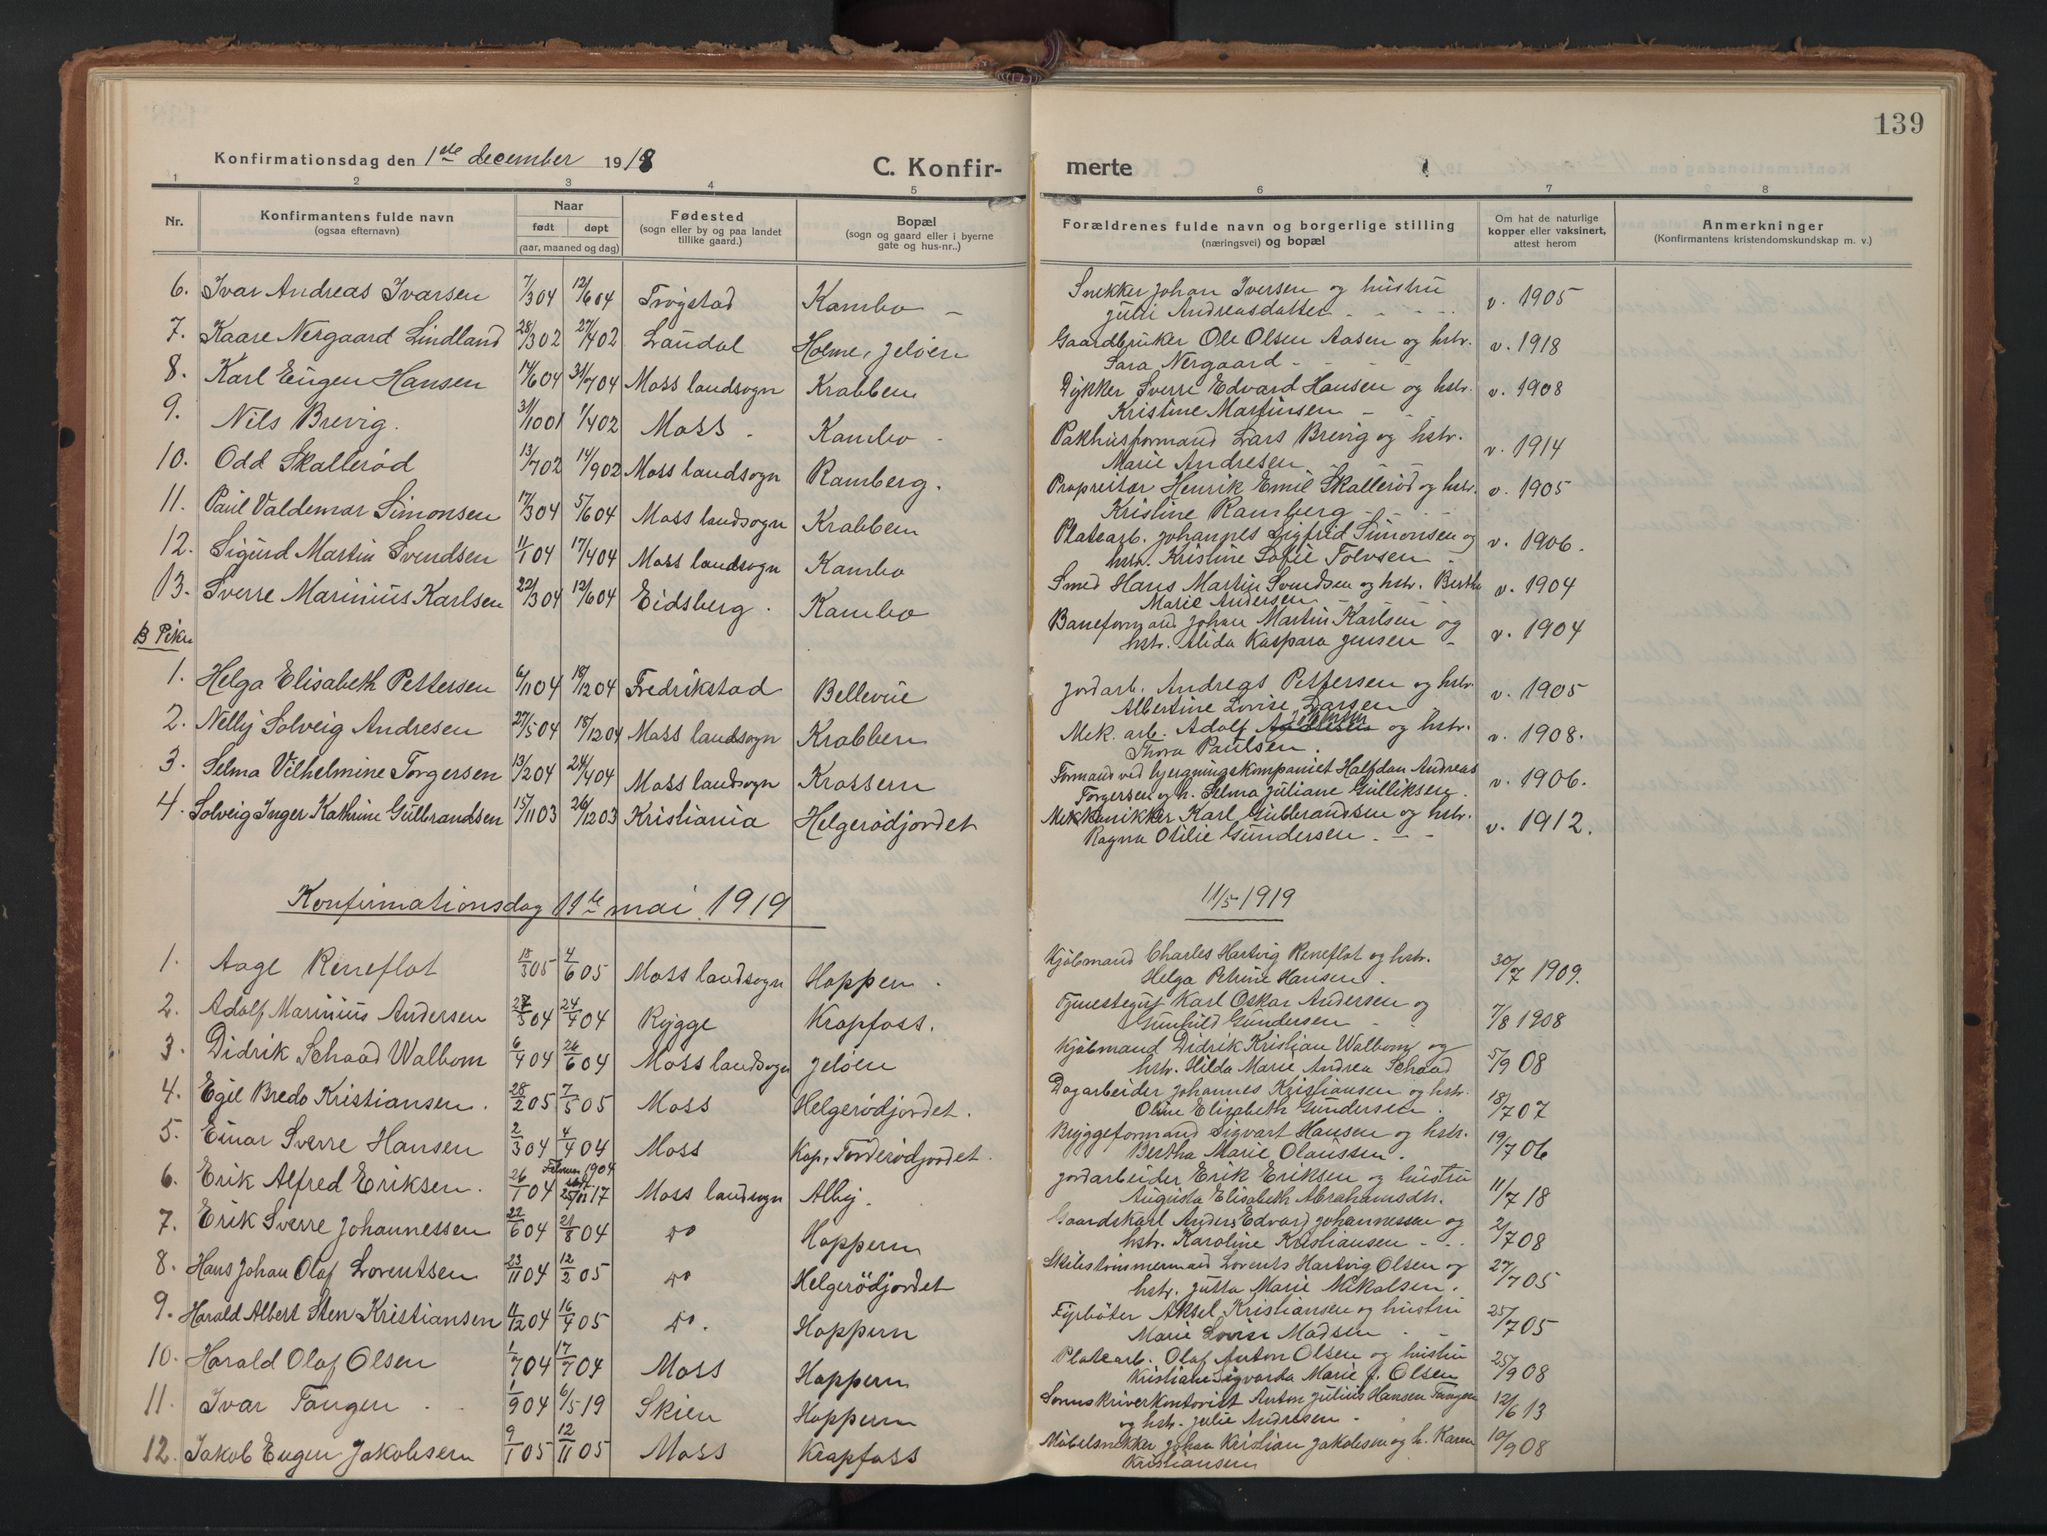 139
Konfirmationsdag den 1ste december 1918
C. Konfirmerte
1 2 3 4 5 6 7 8
Nr. Konfirmantens fulde navn (ogsaa efternavn) Naar født døpt (aar, maaned og dag) Fødested (sogn eller by og paa landet tillike gaard.) Bopæl (sogn og gaard eller i byerne gate og hus-nr..) Forældrenes fulde navn og borgerlige stilling (næringsvei) og bopæl Om hat de naturlige kopper eller vaksinert, attest herom Anmerkninger (Konfirmantens kristendomskundskap m. v.)
6. Ivar Andreas Ivarsen 7/3 04 12/6 04 Trøgstad Kambo Snekker Johan Iversen og hustru v. 1905
Julie Andreasdatter
7. Kaare Nergaard Lindland 28/3 02 27/4 02 Laudal Holme, Jeløen Gaardbruker Ole Olsen Aasen og hstr. v. 1918
Sara Nergaard
8. Karl Eugen Hansen 14/6 04 31/7 04 Moss landsogn Krabben Dykker Sverre Edvard Hansen og hstr. v. 1908
Kristine Martinsen
9. Nils Brevig. 31/10 01 1/4 02 Moss Kambo Pakhusformand Lars Brevig og hstr. v. 1914
Marie Andresen
10. Odd Skallerød 13/7 02 14/9 02 Moss landsogn Ramberg. Propreitær Henrik Emil Skallerød og hstr. v. 1905
Kristine Ramberg
11. Paul Valdemar Simonsen 17/3 04 5/6 04 Moss landsogn Krabben Platearb. Johannes Sigfrid Simonsen og v. 1906.
hstr. Kristine Sofie Tolvsen
12. Sigurd Martin Svendsen 11/1 04 17/4 04 Moss landsogn Kambo Smed Hans Martin Svendsen og hstr. Bertha v. 1904
Marie Andersen
13. Sverre Marinius Karlsen 22/3 04 12/6 04 Eidsberg. Kambo Baneformand Johan Martin Karlsen og v. 1904
hstr. Alida Kaspara Jensen
B Piker
1. Helga Elisabeth Pettersen 6/11 04 18/12 04 Fredrikstad Bellevue Jordarb. Andreas Pettersen og hstr. v. 1905
Albertine Lovise Larsen
2. Nelly Solveig Andresen 27/5 04 18/12 04 Moss landsogn Krabben Mek. arb. Adolf og hstr. v. 1908.
Thora Paulsen.
3. Selma Vilhelmine Torgersen 13/2 04 24/4 04 Moss landsogn Krossern Formand ved bjergningskompaniet Halfdan Andreas v. 1906.
Torgersen og h. Selma Juliane Gulliksen.
4. Solveig Inger Kathrine Gulbrandsen 15/11 03 26/12 03 Kristiania Helgerødjordet Mekkanikker Karl Gulbrandsen og hstr. v. 1912.
Ragna Otilie Gundersen
Konfirmationsdag 11te mai 1919 11/5 1919
1. Aage Reneflot 18/3 05 4/6 05 Moss landsogn Hoppern. Kjøbmand Charles Hartvig Reneflot og hstr. 30/7 1909.
Helga Petrine Hansen
2. Adolf Marinius Andersen 28/5 04 24/7 04 Rygge Krapfoss. Tjenestegut Karl Oskar Andersen og 7/8 1908
Gunhild Gundersen
3. Didrik Schaad Walbom 6/4 04 26/6 04 Moss landsogn Jeløen Kjøbmand Didrik Kristian Walbom og 5/9 08
hstr. Hilda Marie Andrea Schaad
4. Egil Bredo Kristiansen. 28/2 05 7/5 05 Moss Helgerødjordet. Dagarbeider Johannes Kristiansen og hstr. 18/7 07
Oline Elizabeth Gundersen.
5. Einar Sverre Hansen 2/3 04 4/4 04 Moss Kap, Torderødjordet. Bryggeformand Sigvart Hansen og hstr. 19/7 06
Bertha Marie Olaussen.
6. Erik Alfred Eriksen. 26/1 04 1904 17 Moss landsogn Alby. Jordarbeider Erik Eriksen og hustru 11/7 18
Augusta Elisabeth Abrahamsdtr.
7. Erik Sverre Johannessen 22/6 04 21/8 04 Do Hoppern Gaardskarl Anders Edvard Johannessen og 2/7 08
hstr. Karoline Kristiansen
8. Hans Johan Olaf Lorentsen 23/11 04 12/2 05 Do Helgerødjordet Skibstømmermand Lorents Hartvig Olsen og 27/7 05
hstr. Jutta Marie Mikalsen.
9. Harald Albert Sten Kristiansen 11/12 04 16/4 05 Do. Hoppern Fyrbøter Aksel Kristiansen og hustru 25/7 05
Marie Lovise Madsen
10. Harald Olaf Olsen 1/7 04 17/7 04 Moss Hoppern Platearb. Olaf Anton Olsen og hustru 25/9 08
Kristiane Sigvarda Marie J. Olsen
11. Ivar Tangen 1/9 04 6/5 19 Skien Hoppern Sorenskriverkontorist Anton Julius Hansen Tangen 12/6 13
og hstr. Julie Andresen
12. Jakob Eugen Jakobsen 9/1 05 12/11 05 Moss Krapfoss Møbelsnekker Johan Kristian Jakobsen og h. Karen 10/9 08
Kristiansen